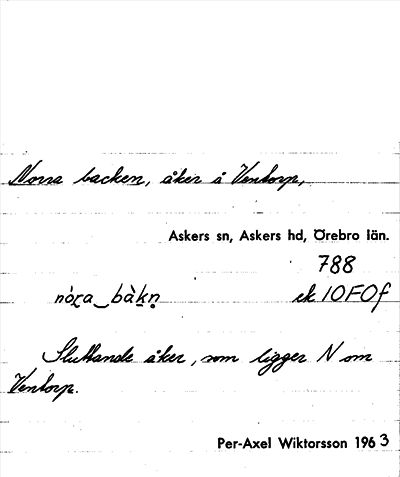 Norra backen, åker å Ventorp,
Askers sn, Askers hd, Örebro län.
788
nó̀ra‿bàkn̥ ek 10F0f
Sluttande åker, som ligger N om
Ventorp.
Per-Axel Wiktorsson 1963